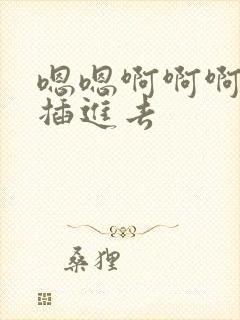 嗯嗯啊啊啊
插進去
桑狸